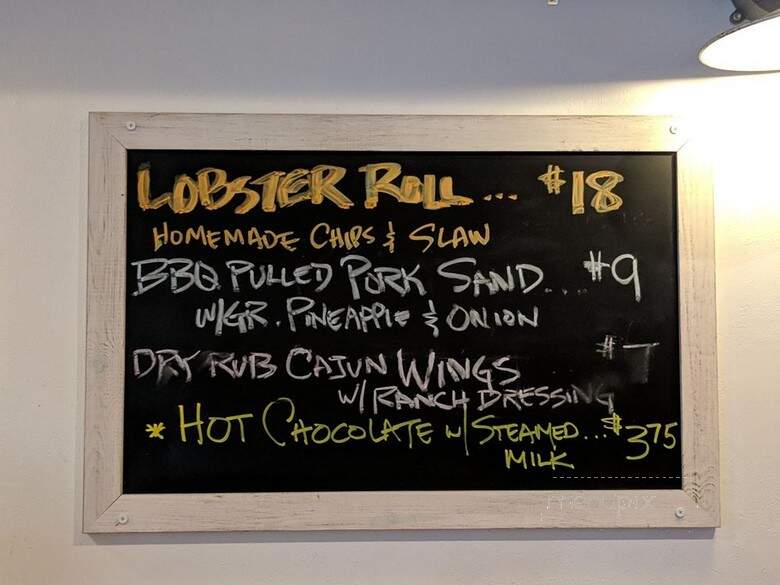 LOBSTER ROLL ... $18
HOMEMADE CHIPS & SLAW
BBQ PULLED PORK SAND... $9
W/GR. PINEAPPLE & ONION
DRY RUB CAJUN WINGS $7
W/ RANCH DRESSING
* HOT CHOCOLATE W/ STEAMED...$3.75
MILK